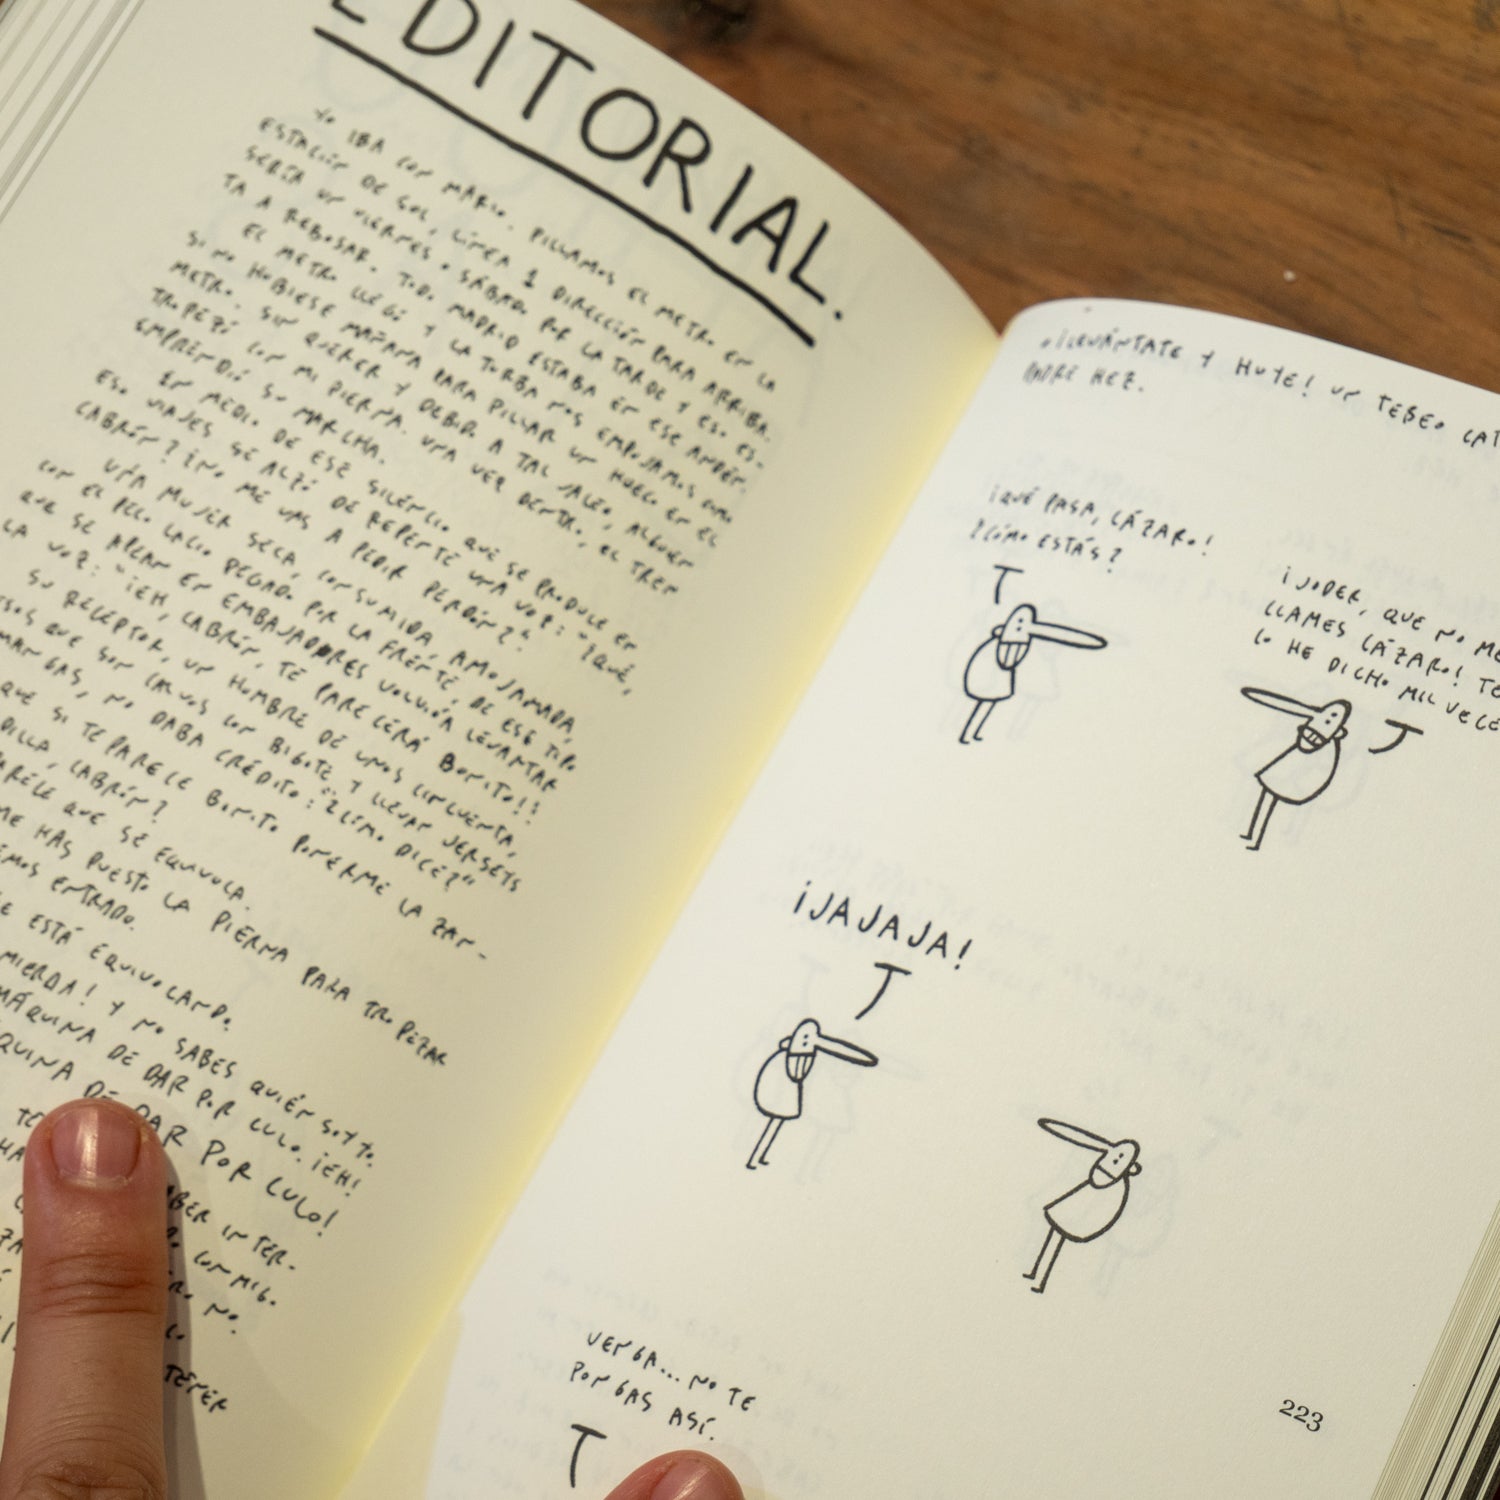 EDITORIAL.
YO IBA CON MARIO. PILLAMOS EL METRO EN LA
ESTACIÓN DE SOL, LÍNEA 1 DIRECCIÓN PARA ARRIBA.
SERÍA UN VIERNES O SÁBADO POR LA TARDE Y ESO ES-
TA A REBOSAR. TODO MADRID ESTABA EN ESE ANDÉN.
EL METRO LLEGÓ Y LA TURBA NOS EMPUJAMOS COMO
SI NO HUBIESE MAÑANA PARA PILLAR UN HUECO EN EL
METRO. SIN QUERER Y DEBIDO A TAL JALEO, ALGUIEN
TROPEZÓ CON MI PIERNA. UNA VEZ DENTRO, EL TREN
EMPRENDIÓ SU MARCHA.
EN MEDIO DE ESE SILENCIO QUE SE PRODUCE EN
ESOS VIAJES SE ALZÓ DE REPENTE UNA VOZ: "¿QUÉ,
CABRÓN? ¿NO ME VAS A PEDIR PERDÓN?".
UNA MUJER SECA, CONSUMIDA, AMOJAMADA,
CON EL PELO LACIO PEGADO POR LA FRENTE, DE ESE TIPO
QUE SE APEAN EN EMBAJADORES VOLVÍA A LEVANTAR
LA VOZ: "¡EH, CABRÓN, TE PARECERÁ BONITO!".
SU RECEPTOR, UN HOMBRE DE UNOS CINCUENTA,
QUE SON CALVOS CON BIGOTE Y LLEVAN JERSEYS
MANGAS, NO DABA CRÉDITO: "¿CÓMO DICE?"
QUE SI TE PARECE BONITO PONERME LA ZAN-
DILLA, CABRÓN?
QUE SE EQUIVOCA.
ME HAS PUESTO LA PIERNA PARA TROPEZAR
ENTRADO.
ESTÁ EQUIVOCANDO.
MIERDA! Y NO SABES QUIÉN SOY YO.
MÁQUINA DE DAR POR CULO. ¡EH!
DE DAR POR CULO!
INTER-
CONMIGO
NO.
LO
TENER
"¡LEVÁNTATE Y HUYE! UN TEBEO
HEZ.
¡QUÉ PASA, LÁZARO!
¿CÓMO ESTÁS?
¡JODER, QUE NO ME
LLAMES LÁZARO! TE
LO HE DICHO MIL VECE
¡JAJAJA!
VENGA... NO TE
PONGAS ASÍ.
223